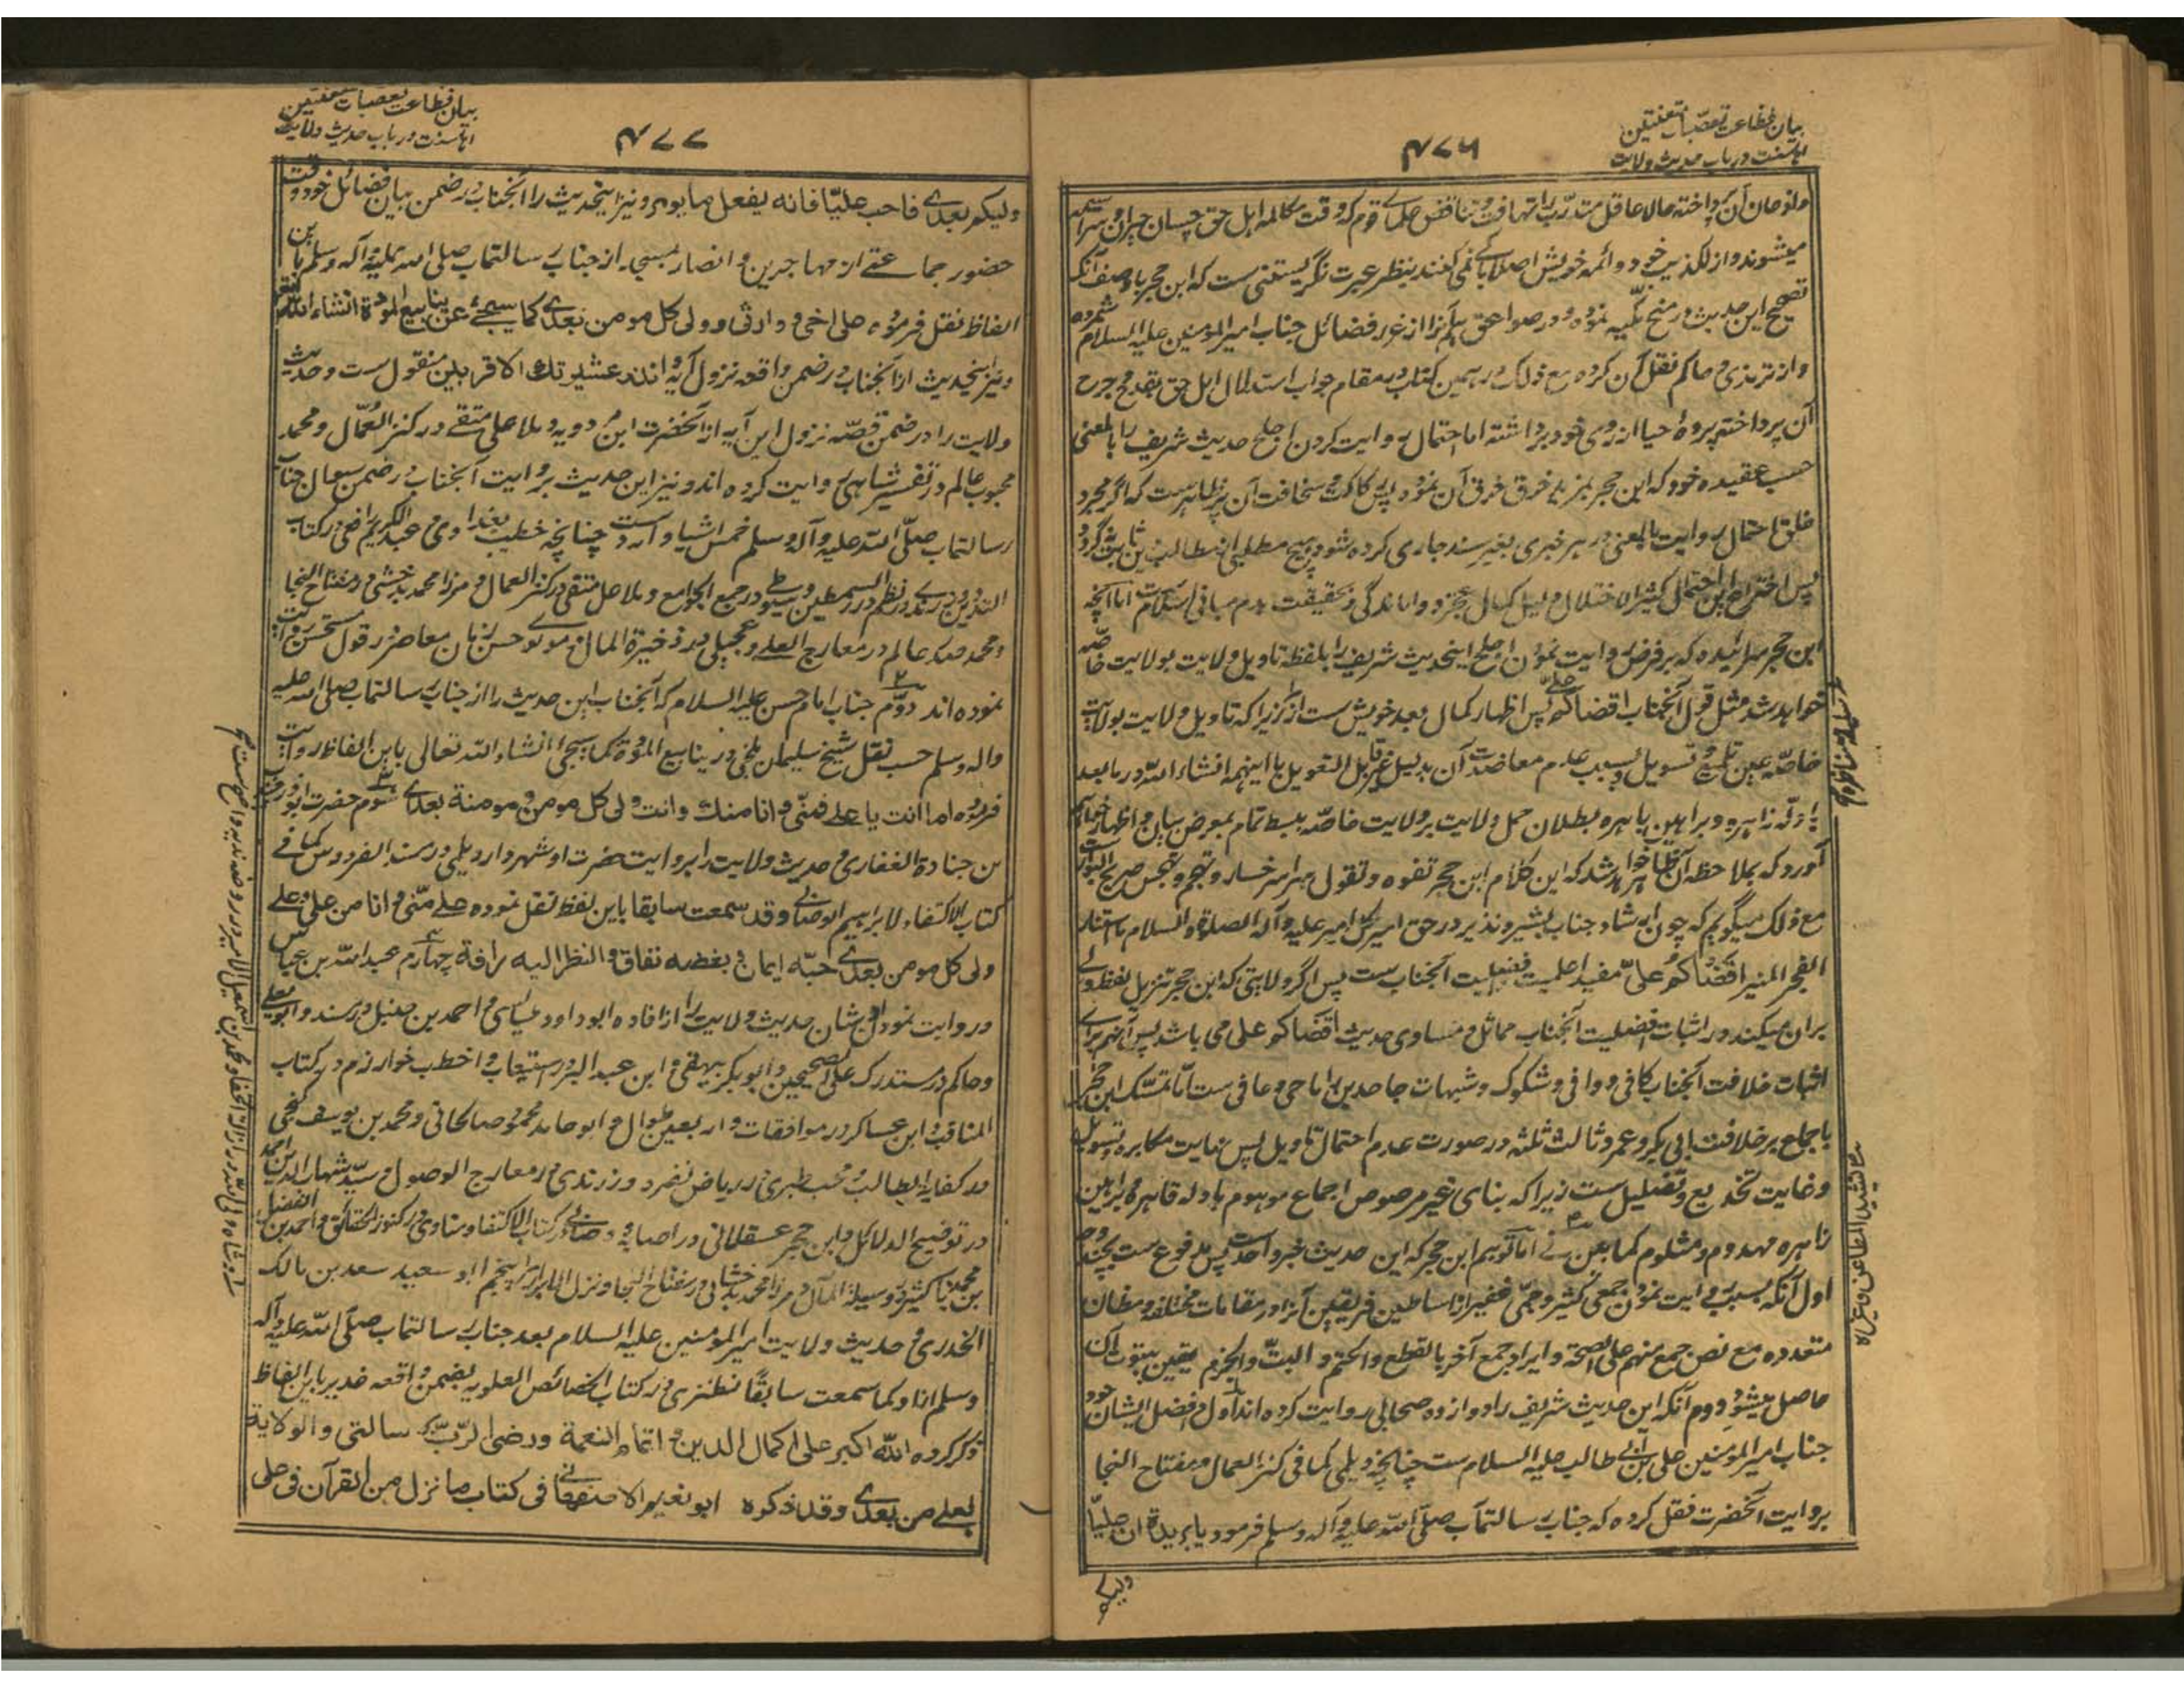 بیان فظاعت تعصبات متعنتین
اهلسنت در باب حدیث ولایت
۴۷۶
میشوند و از تکذیب خود و ائمه خویش اصلا باکی نمی کنند بنظر عبرت نگریستنی ست که ابن حجر با وصف آنکه
تصحیح این حدیث در منح مکیه نموده و در صواعق هم آنرا از غرر فضائل جناب امیر المومنین علیه السلام شمرده
و از ترمذی و حاکم نقل آن کرده مع ذلک در همین کتاب و بمقام جواب استدلال اهل حق بقدح و جرح
آن پرداخته پرده حیا از روی خود برداشته اما احتمال روایت کردن اجلح حدیث شریف را بالمعنی
حسب عقیده خود که ابن حجر نموده پس رکاکت و سخافت آن پر ظاهر ست که اگر مجرد
احتمال روایت بالمعنی در هر خبری بغیر سند جاری کرده شود هیچ مطلبی از مطالب دین ثابت نگردد
پس اختراع این احتمال کثیر الاختلال دلیل کمال عجز و واماندگی و بحقیقت هدم مبانی اسلام ست اما آنچه
ابن حجر سرائیده که بر فرض روایت نمودن اجلح اینحدیث شریف را بلفظه تاویل ولایت بولایت خاصه
خواهد شد مثل قول آنجناب اقضاکم علی پس اظهار کمال بعد خویش ست از زیرا که تاویل ولایت بولایت
خاصه عین تلمیع و تسویل و بسبب عدم معاضدت آن بدلیل غیر قابل التعویل با اینهمه انشاء الله در ما بعد
بادله زاهره و براهین باهره بطلان حمل ولایت بر ولایت خاصه ببسط تمام بمعرض بیان و اظهار خواهم
آورد که بملاحظه آن ظاهر خواهد شد که این کلام ابن حجر تفوه و تقول سراسر خسار و تهجم و تهجس صریح البوار ست
مع ذلک میگویم که چون ارشاد جناب بشیر و نذیر در حق امیر کل امیر علیه و آله الصلوة و السلام ما استنار
الفجر المنیر اقضاکم علی مفید اعلمیت و افضلیت آنجناب ست پس اگر ولایتی که ابن حجر تنزیل لفظ ولی
بران میکند در اثبات افضلیت آنجناب مماثل و مساوی حدیث اقضاکم علی می باشد پس آنهم برای
اثبات خلافت آنجناب کافی و وافی و شکوک و شبهات جاحدین را ماحی و عافی ست اما تمسک ابن حجر
باجماع بر خلافت ابی بکر و عمر و ثالث ثلثه در صورت عدم احتمال تاویل پس نهایت مکابره و تسویل
و غایت تخدیع و تضلیل ست زیرا که بنای غیر مرصوص اجماع موهوم بادله قاهره و براهین
زاهره مهدوم و مثلوم کما بین فی اما توهیم ابن حجر که این حدیث خبر واحد ست پس مدفوع ست بچند وجه
اول آنکه بسبب روایت نمودن جمعی کثیر و جمی غفیر از اساطین فریقین آنرا در مقامات مختلفه و مظان
متعدده مع نص جمع منهم علی الصحة و ایراد جمع آخر بالقطع و الحتم و البت و الجزم یقین بثبوت آن
حاصل میشود دوم آنکه این حدیث شریف را دوازده صحابی روایت کرده اند اول و افضل ایشان خود
جناب امیر المومنین علی بن ابی طالب علیه السلام ست چنانچه دیلمی کما فی کنز العمال و مفتاح النجا
بروایت آنحضرت نقل کرده که جناب رسالتمآب صلی الله علیه و آله وسلم فرمود یا بریدة ان علیا
ولیکم
بیان فظاعت تعصبات متعنتین
اهلسنت در باب حدیث ولایت
۴۷۷
ولیکم بعدی فاحب علیا فانه یفعل ما یومر و نیز اینحدیث را آنجناب در ضمن بیان فضائل خود وقت
حضور جماعتی از مهاجرین و انصار بمسجد از جناب رسالتماب صلی الله علیه و آله وسلم باین
الفاظ نقل فرموده علی اخی و وارثی و ولی کل مومن بعدی کما سیجئ عن ینابیع المودة انشاء الله
و نیز اینحدیث از آنجناب در ضمن واقعه نزول آیه و انذر عشیرتك الاقربین منقول ست و حدیث
ولایت را در ضمن قصه نزول این آیه از آنحضرت ابن مردویه و ملا علی متقی در کنز العمال و محمد
محبوب عالم در تفسیر شاهی روایت کرده اند و نیز این حدیث بروایت آنجناب در ضمن سوال جناب
رسالتماب صلی الله علیه و آله وسلم خمس اشیا وارد ست چنانچه خطیب بغدادی و عبد الکریم رافعی در کتاب
التدوین و زرندی در نظم درر السمطین و سیوطی در جمع الجوامع و ملا علی متقی در کنز العمال و مرزا محمد بدخشی در مفتاح النجا
و محمد صدر عالم در معارج العلی و عجیلی در ذخیرة المال و مولوی حسن زمان معاصر در قول مستحسن روایت
نموده اند دوم جناب امام حسن علیه السلام که آنجناب این حدیث را از جناب رسالتماب صلی الله علیه
واله وسلم حسب نقل شیخ سلیمان بلخی در ینابیع المودة کما سیجئ انشاء الله تعالی باین الفاظ روایت
فرموده اما انت یا علی فمنی و انا منك و انت ولی کل مومن و مومنة بعدی سوم حضرت ابوذر
بن جنادة الغفاری و حدیث ولایت را بروایت حضرت او شهردار دیلمی در مسند الفردوس کما فی
کتاب الاکتفاء لابراهیم الوصابی و قد سمعت سابقا باین لفظ نقل نموده علی منی و انا من علی و علی
ولی کل مومن بعدی حبه ایمان و بغضه نفاق و النظر الیه رافة چهارم عبد الله بن عباس
و روایت نمودن او شان حدیث ولایت را از افاده ابو داود طیالسی و احمد بن حنبل در مسند و ابو یعلی
و حاکم در مستدرک علی الصحیحین و ابو بکر بیهقی و ابن عبد البر در استیعاب و اخطب خوارزم در کتاب
المناقب و ابن عساکر در موافقات و اربعین طوال و ابو حامد محمود صالحانی و محمد بن یوسف کنجی
در کفایة الطالب و محب طبری در ریاض نضره و زرندی در معارج الوصول و سید شهاب الدین احمد
در توضیح الدلائل و ابن حجر عسقلانی در اصابه و وصابی در کتاب الاکتفا و مناوی در کنوز الحقائق و احمد بن الفضل
بن محمد باکثیر در وسیلة المآل و مرزا محمد بدخشانی در مفتاح النجا و نزل الابرار پنجم ابو سعید سعد بن مالک
الخدری و حدیث ولایت امیر المومنین علیه السلام بعد جناب رسالتماب صلی الله علیه و آله
وسلم از او کما سمعت سابقا نطنزی در کتاب الخصائص العلویه بضمن واقعه غدیر باین الفاظ
ذکر کرده الله اکبر علی اکمال الدین و اتمام النعمة و رضی الرب برسالتی و الولایة
لعلی من بعدی و قد ذکره ابو نعیم الاصفهانی فی کتاب ما نزل من القرآن فی علی